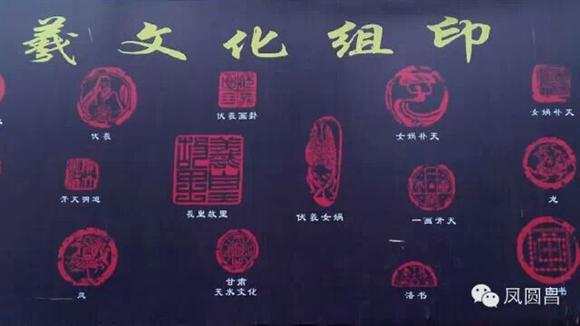 羲文化组印
伏羲
伏羲画卦
女娲补天
女娲补天
羲皇故里
伏羲女娲
一画开天
龙
凤
甘肃
天水文化
洛书
书
凤圆昌